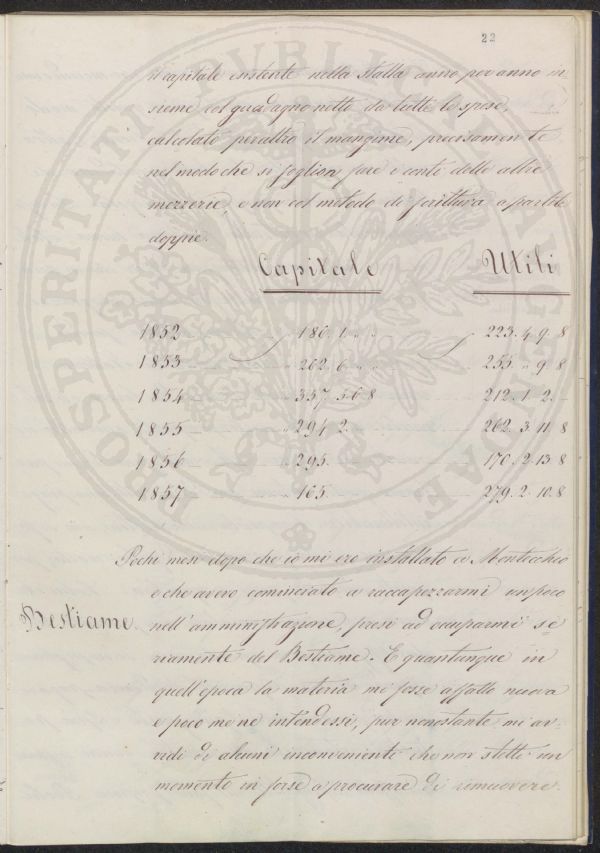 22
il capitale esistente nella stalla anno per anno in
sieme col guadagno netto da tutte le spese,
calcolato peraltro il mangime, precisamente
nel modo che si soglion fare i conti delle altre
mezzerie, e non col metodo di scrittura a partite
doppie.
Capitale Utili
1852 " 186. 1. " " 223. 4. 9. 8
1853 " 262. 6. " " 255. " 9. 8
1854 " 357. 5. 6. 8 212. 1. 2. -
1855 " 294. 2. 262. 3. 11. 8
1856 " 295. 170. 2. 13. 8
1857 " 165 279. 2. 10. 8
Pochi mesi dopo che io mi ero installato a Montecchio
e che avevo cominciato a raccapezzarmi un poco
Bestiame. nell'amministrazione, presi ad occuparmi se
riamente del Bestiame. E quantunque in
quell'epoca la materia mi fosse affatto nuova
e poco me ne intendessi, pur nonostante mi av-
vidi di alcuni inconvenienti che non stetti un
momento in forse a procurare di rimuovere.
PROSPERITATI PVBLICAE AVGENDAE